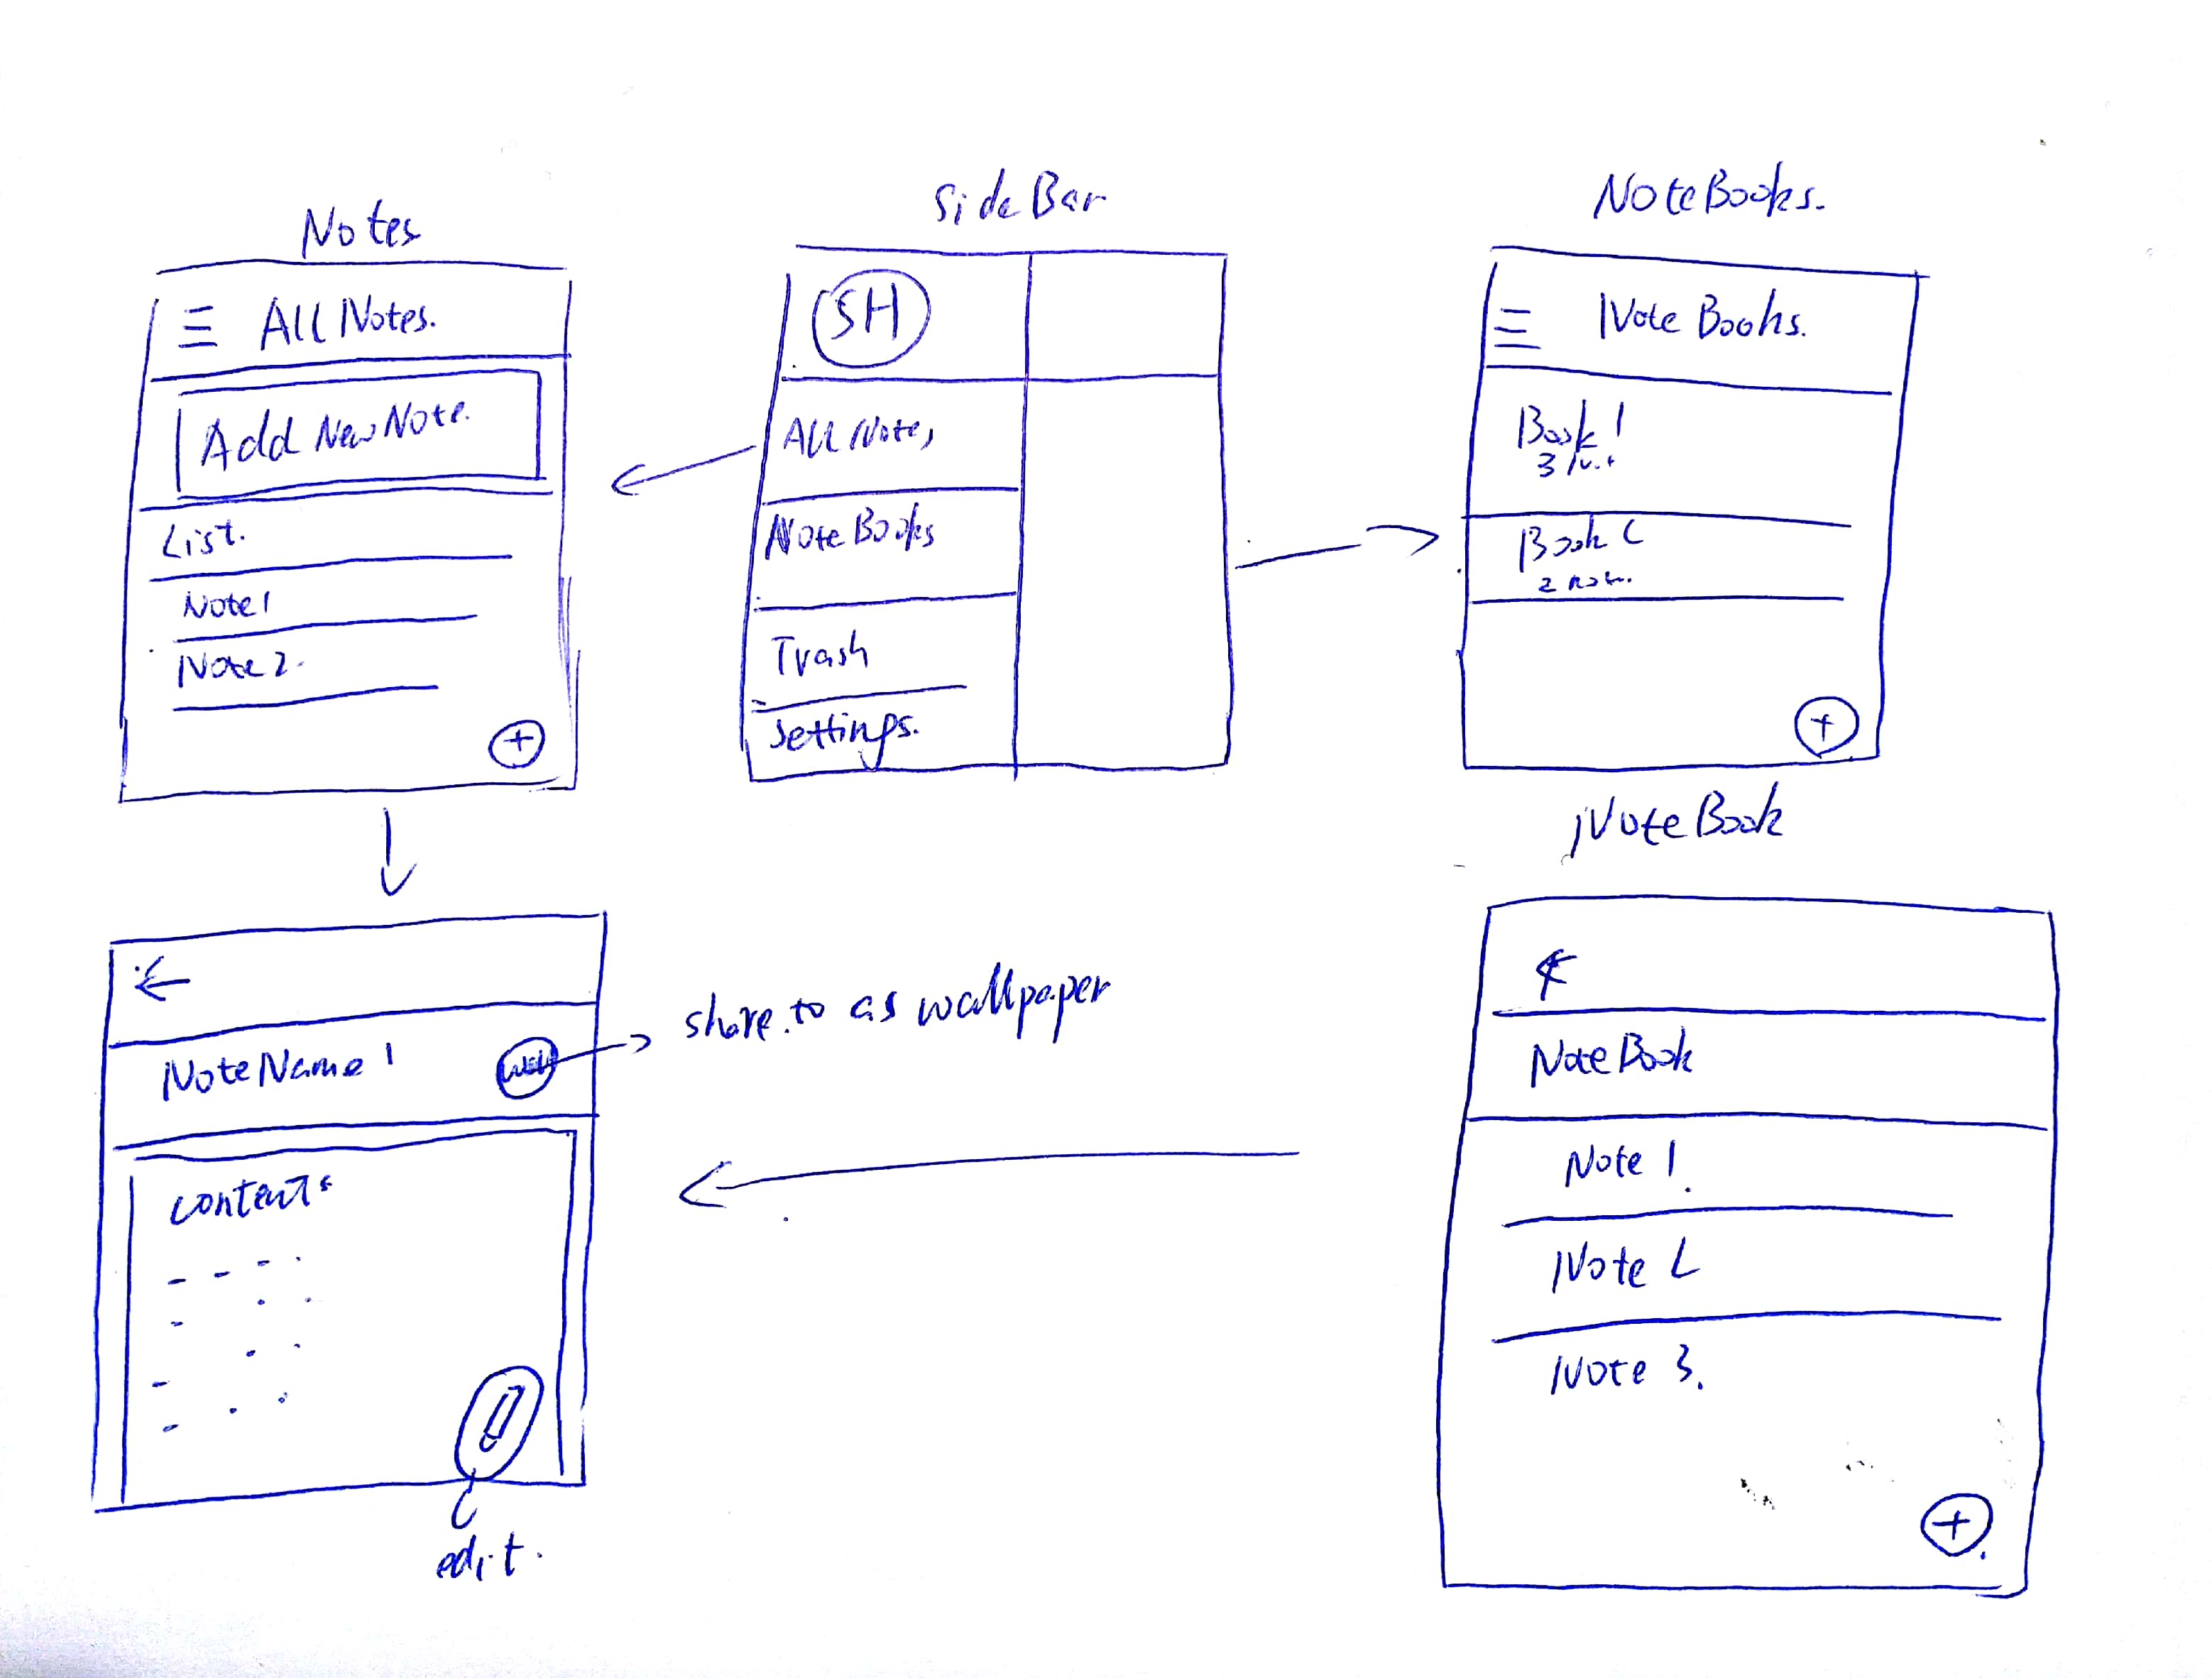 Notes
≡ All Notes.
Add New Note.
List.
Note 1
Note 2.
+
SideBar
SH
All Notes
NoteBooks
Trash
Settings.
NoteBooks.
≡ NoteBooks.
Book 1
3
Book 2
2
+
NoteBook
←
NoteName 1
share to as wallpaper
contents
edit.
←
NoteBook
Note 1.
Note 2
Note 3.
+